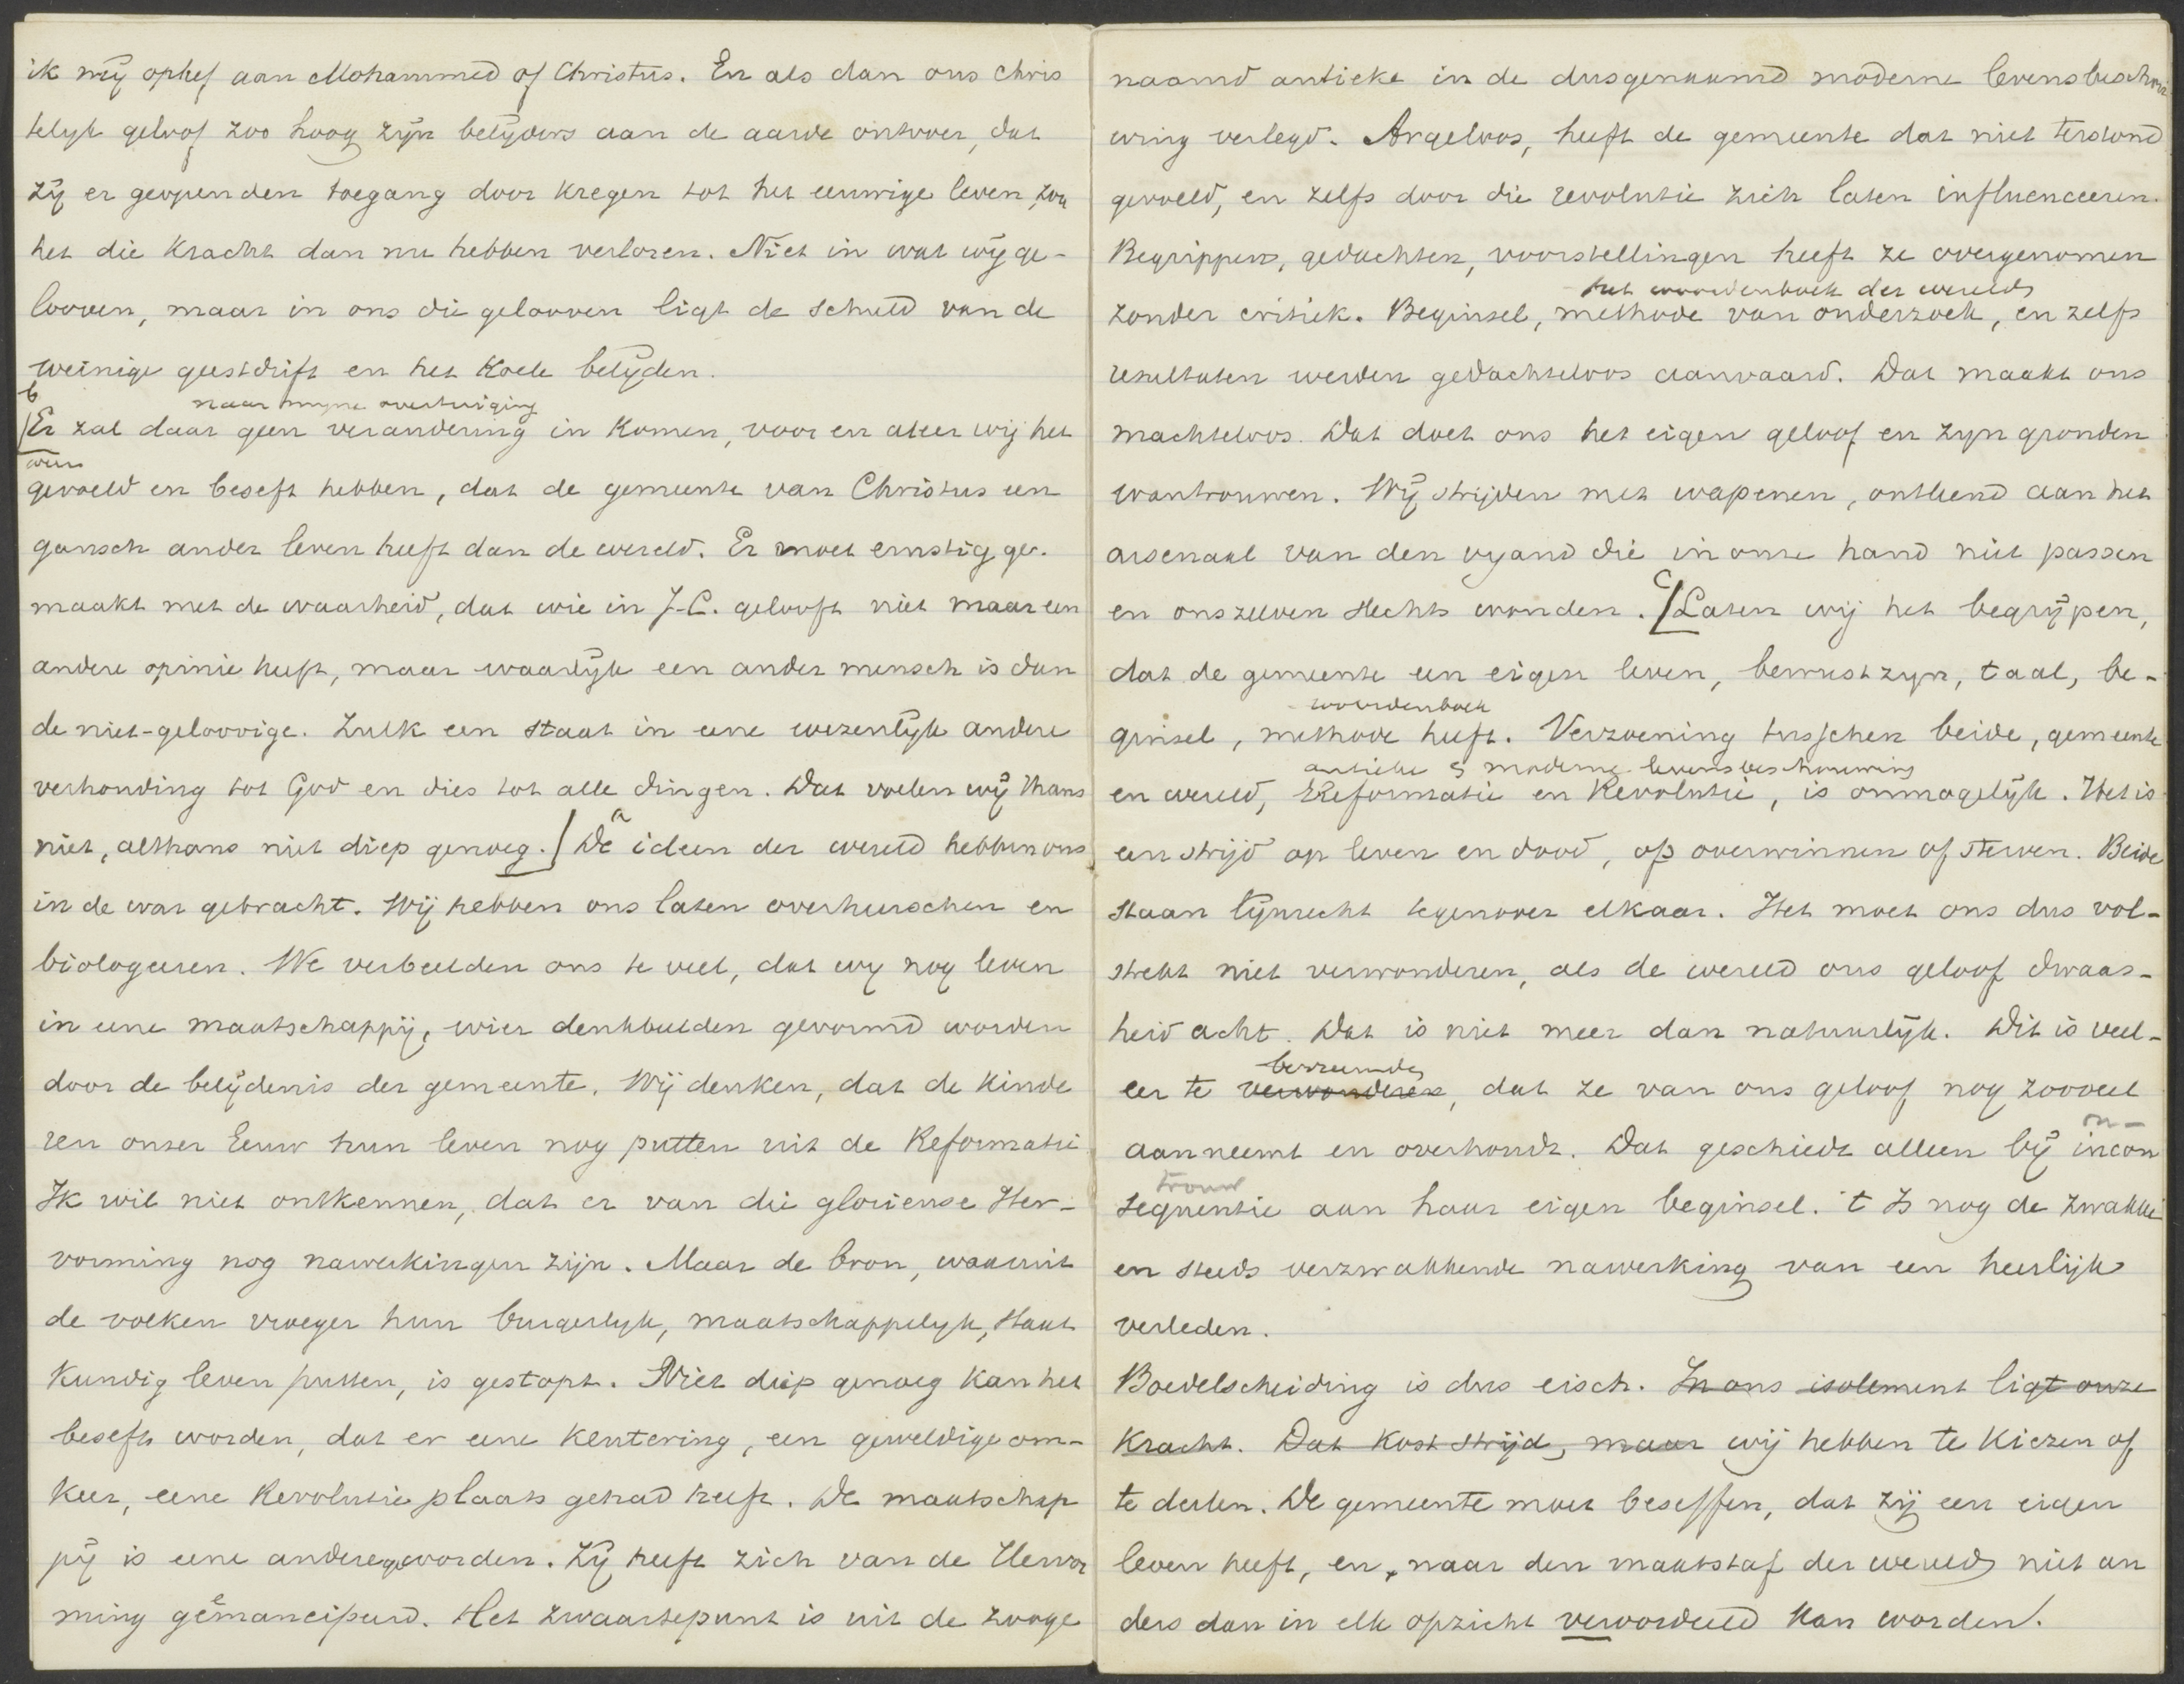 ik mij ophef aan Mohammed of Christus. En als dan ons chris
telijk geloof zoo hoog zijn belijders aan de aarde ontvoer, dat
zij er geopenden toegang door kregen tot het eeuwige leven, zou
het die kracht dan nu hebben verloren. Niet in wat wij ge-
looven, maar in ons die gelooven ligt de schuld van de
weinige geestdrift en het koele belijden.
b
naar mijne overtuiging
Er zal daar geen verandering in komen, voor en aleer wij het
weer
gevoeld en beseft hebben, dat de gemeente van Christus een
gansch ander leven heeft dan de wereld. Er moet ernstig ge-
maakt met de waarheid, dat wie in J.C. gelooft niet maar een
andere opinie heeft, maar waarlijk een ander mensch is dan
de niet-geloovige. Zulk een staat in eene wezenlijk andere
verhouding tot God en dies tot alle dingen. Dat voelen wij thans
niet, althans niet diep genoeg. a De ideen der wereld hebben ons
in de war gebracht. Wij hebben ons laten overheerschen en
biologeeren. We verbeelden ons te veel, dat wij nog leven
in eene maatschappij, wier denkbeelden gevormd worden
door de belijdenis der gemeente. Wij denken, dat de kinde
ren onzer Eeuw hun leven nog putten uit de Reformatie
Ik wil niet ontkennen, dat er van die glorieuse Her-
vorming nog nawerkingen zijn. Maar de bron, waaruit
de volken vroeger hun burgerlijk, maatschappelijk, staat
kundig leven putten, is gestopt. Niet diep genoeg kan het
beseft worden, dat er eene kentering, een geweldige om-
keer, eene Revolutie plaats gehad heeft. De maatschap
pij is eene andere geworden. Zij heeft zich van de Hervor
ming geëmancipeerd. Het zwaartepunt is uit de zooge
naamd antieke in de dusgenaamd moderne levensbeschou
wing verlegd. Argeloos, heeft de gemeente dat niet terstond
gevoeld, en zelfs door die revolutie zich laten influenceeren.
Begrippen, gedachten, voorstellingen heeft ze overgenomen
het woordenboek der wereld
zonder critiek. Beginsel, methode van onderzoek, en zelfs
resultaten werden gedachteloos aanvaard. Dat maakt ons
machteloos. Dat doet ons het eigen geloof en zijn gronden
wantrouwen. Wij strijden met wapenen, ontleend aan het
arsenaal van den vijand die in onze hand niet passen
en onszelven slechts wonden. c Laten wij het begrijpen,
dat de gemeente een eigen leven, bewustzijn, taal, be-
woordenboek
ginsel, methode heeft. Verzoening tusschen beide, gemeente
antieke & moderne levensbeschouwing
en wereld, Reformatie en Revolutie, is onmogelijk. Het is
een strijd op leven en dood, op overwinnen of sterven. Beide
staan lijnrecht tegenover elkaar. Het moet ons dus vol-
strekt niet verwonderen, als de wereld ons geloof dwaas-
heid acht. Dat is niet meer dan natuurlijk. Dit is veel-
bevreemden
eer te verwonderen, dat ze van ons geloof nog zooveel
aanneemt en overhoudt. Dat geschiedt alleen bij incon
on-
trouw
sequentie aan haar eigen beginsel. 't Is nog de zwakke
en steeds verzwakkende nawerking van een heerlijk
verleden.
Boedelscheiding is dus eisch. In ons isolement ligt onze
kracht. Dat kost strijd, maar wij hebben te kiezen of
te deelen. De gemeente moet beseffen, dat zij een eigen
leven heeft, en, naar den maatstaf der wereld niet an
ders dan in elk opzicht veroordeeld kan worden.